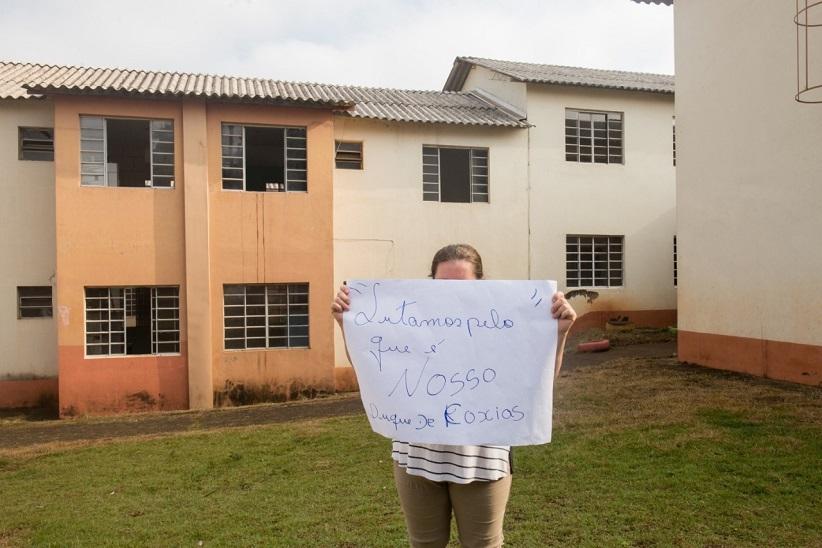 "Lutamos pelo"
que é
Nosso
Duque De Caxias